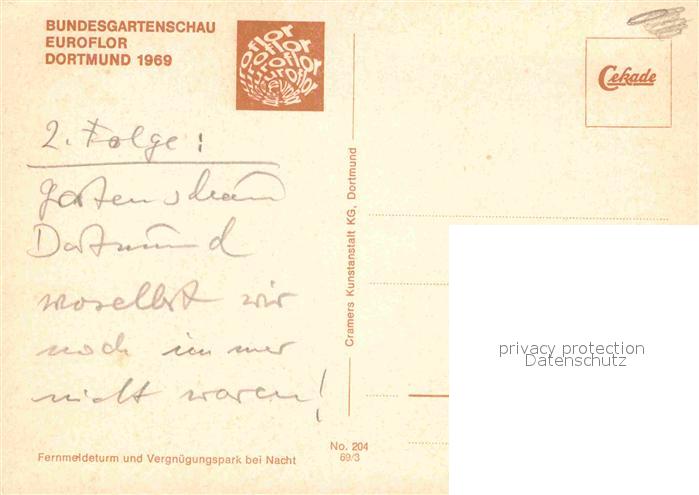 BUNDESGARTENSCHAU
EUROFLOR
DORTMUND 1969
euroflor
Cekade
2. Folge:
Gartenschau
Dortmund
woselbst wir
noch immer
nicht waren!
Cramers Kunstanstalt KG, Dortmund
Fernmeldeturm und Vergnügungspark bei Nacht
No. 204
69/3
privacy protection
Datenschutz